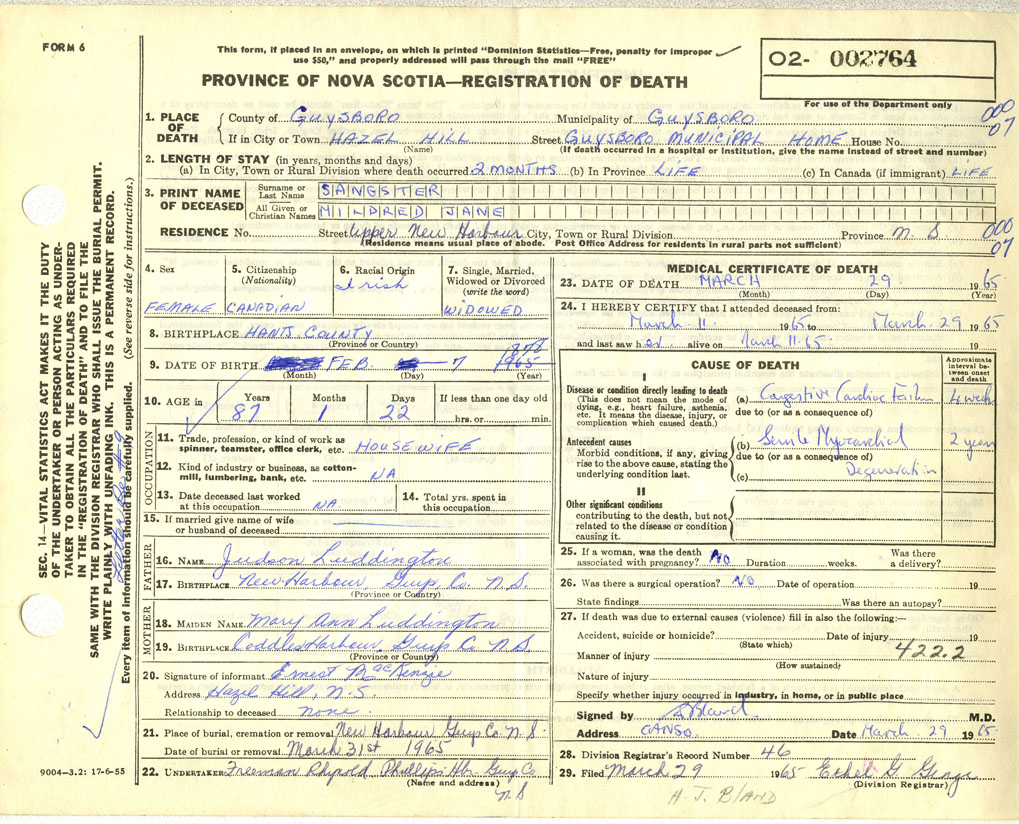 FORM 6
This form, if placed in an envelope, on which is printed "Dominion Statistics—Free, penalty for improper
use $50," and properly addressed will pass through the mail "FREE"
O2- 002764
PROVINCE OF NOVA SCOTIA—REGISTRATION OF DEATH
For use of the Department only
1. PLACE OF DEATH
County of GUYSBORO Municipality of GUYSBORO 000 07
If in City or Town HAZEL HILL Street GUYSBORO MUNICIPAL HOME House No.
(Name) (If death occurred in a hospital or institution, give the name instead of street and number)
2. LENGTH OF STAY (in years, months and days)
(a) In City, Town or Rural Division where death occurred 2 MONTHS (b) In Province LIFE (c) In Canada (if immigrant) LIFE
3. PRINT NAME OF DECEASED
Surname or Last Name SANGSTER
All Given or Christian Names MILDRED JANE
RESIDENCE No. Street Upper New Harbour City, Town or Rural Division Province N.S 000 07
(Residence means usual place of abode. Post Office Address for residents in rural parts not sufficient)
4. Sex FEMALE
5. Citizenship (Nationality) CANADIAN
6. Racial Origin Irish
7. Single, Married, Widowed or Divorced (write the word) WIDOWED
8. BIRTHPLACE HANTS COUNTY
(Province or Country)
9. DATE OF BIRTH FEB. 7 1965 878
(Month) (Day) (Year)
10. AGE in Years 87 Months 1 Days 22 If less than one day old hrs. or min.
OCCUPATION
11. Trade, profession, or kind of work as
spinner, teamster, office clerk, etc. HOUSEWIFE
12. Kind of industry or business, as cotton-
mill, lumbering, bank, etc. NA
13. Date deceased last worked at this occupation NA.
14. Total yrs. spent in this occupation
15. If married give name of wife
or husband of deceased
FATHER
16. NAME Judson Luddington
17. BIRTHPLACE New Harbour Guys Co. N.S.
(Province or Country)
MOTHER
18. MAIDEN NAME Mary Ann Luddington
19. BIRTHPLACE Coddles Harbour, Guys Co N S
(Province or Country)
20. Signature of informant Ernest McKenzie
Address Hazel Hill N.S.
Relationship to deceased none.
21. Place of burial, cremation or removal New Harbour Guys Co. N.S.
Date of burial or removal March 31st 1965
22. UNDERTAKER Freeman Phillips Hbr Guys Co
(Name and address) N S
MEDICAL CERTIFICATE OF DEATH
23. DATE OF DEATH MARCH 29 1965
(Month) (Day) (Year)
24. I HEREBY CERTIFY that I attended deceased from:
March 11 1965 to March 29 1965
and last saw her alive on March 11. 65. 19
CAUSE OF DEATH
Approximate interval between onset and death
I
Disease or condition directly leading to death
(This does not mean the mode of
dying, e.g., heart failure, asthenia,
etc. It means the disease, injury, or
complication which caused death.)
(a) Congestive Cardiac Failure 4 weeks
due to (or as a consequence of)
Antecedent causes
Morbid conditions, if any, giving
rise to the above cause, stating the
underlying condition last.
(b) Senile Myocardial 2 years
due to (or as a consequence of)
Degeneration
(c)
II
Other significant conditions
contributing to the death, but not
related to the disease or condition
causing it.
25. If a woman, was the death associated with pregnancy? NO Duration weeks. Was there a delivery?
26. Was there a surgical operation? NO Date of operation 19
State findings Was there an autopsy?
27. If death was due to external causes (violence) fill in also the following:—
Accident, suicide or homicide? Date of injury 19
(State which) 422.2
Manner of injury
(How sustained)
Nature of injury
Specify whether injury occurred in industry, in home, or in public place
Signed by Bland M.D.
Address CANSO. Date March 29 1965
28. Division Registrar's Record Number 46
29. Filed March 29 1965 Ethel G George
(Division Registrar)
H J BLAND
9004-3.2: 17-6-55
SEC. 14.—VITAL STATISTICS ACT MAKES IT THE DUTY
OF THE UNDERTAKER OR PERSON ACTING AS UNDER-
TAKER TO OBTAIN ALL THE PARTICULARS REQUIRED
IN THE "REGISTRATION OF DEATH" AND TO FILE THE
SAME WITH THE DIVISION REGISTRAR WHO SHALL ISSUE THE BURIAL PERMIT.
WRITE PLAINLY WITH UNFADING INK. THIS IS A PERMANENT RECORD.
Every item of information should be carefully supplied. (See reverse side for instructions.)